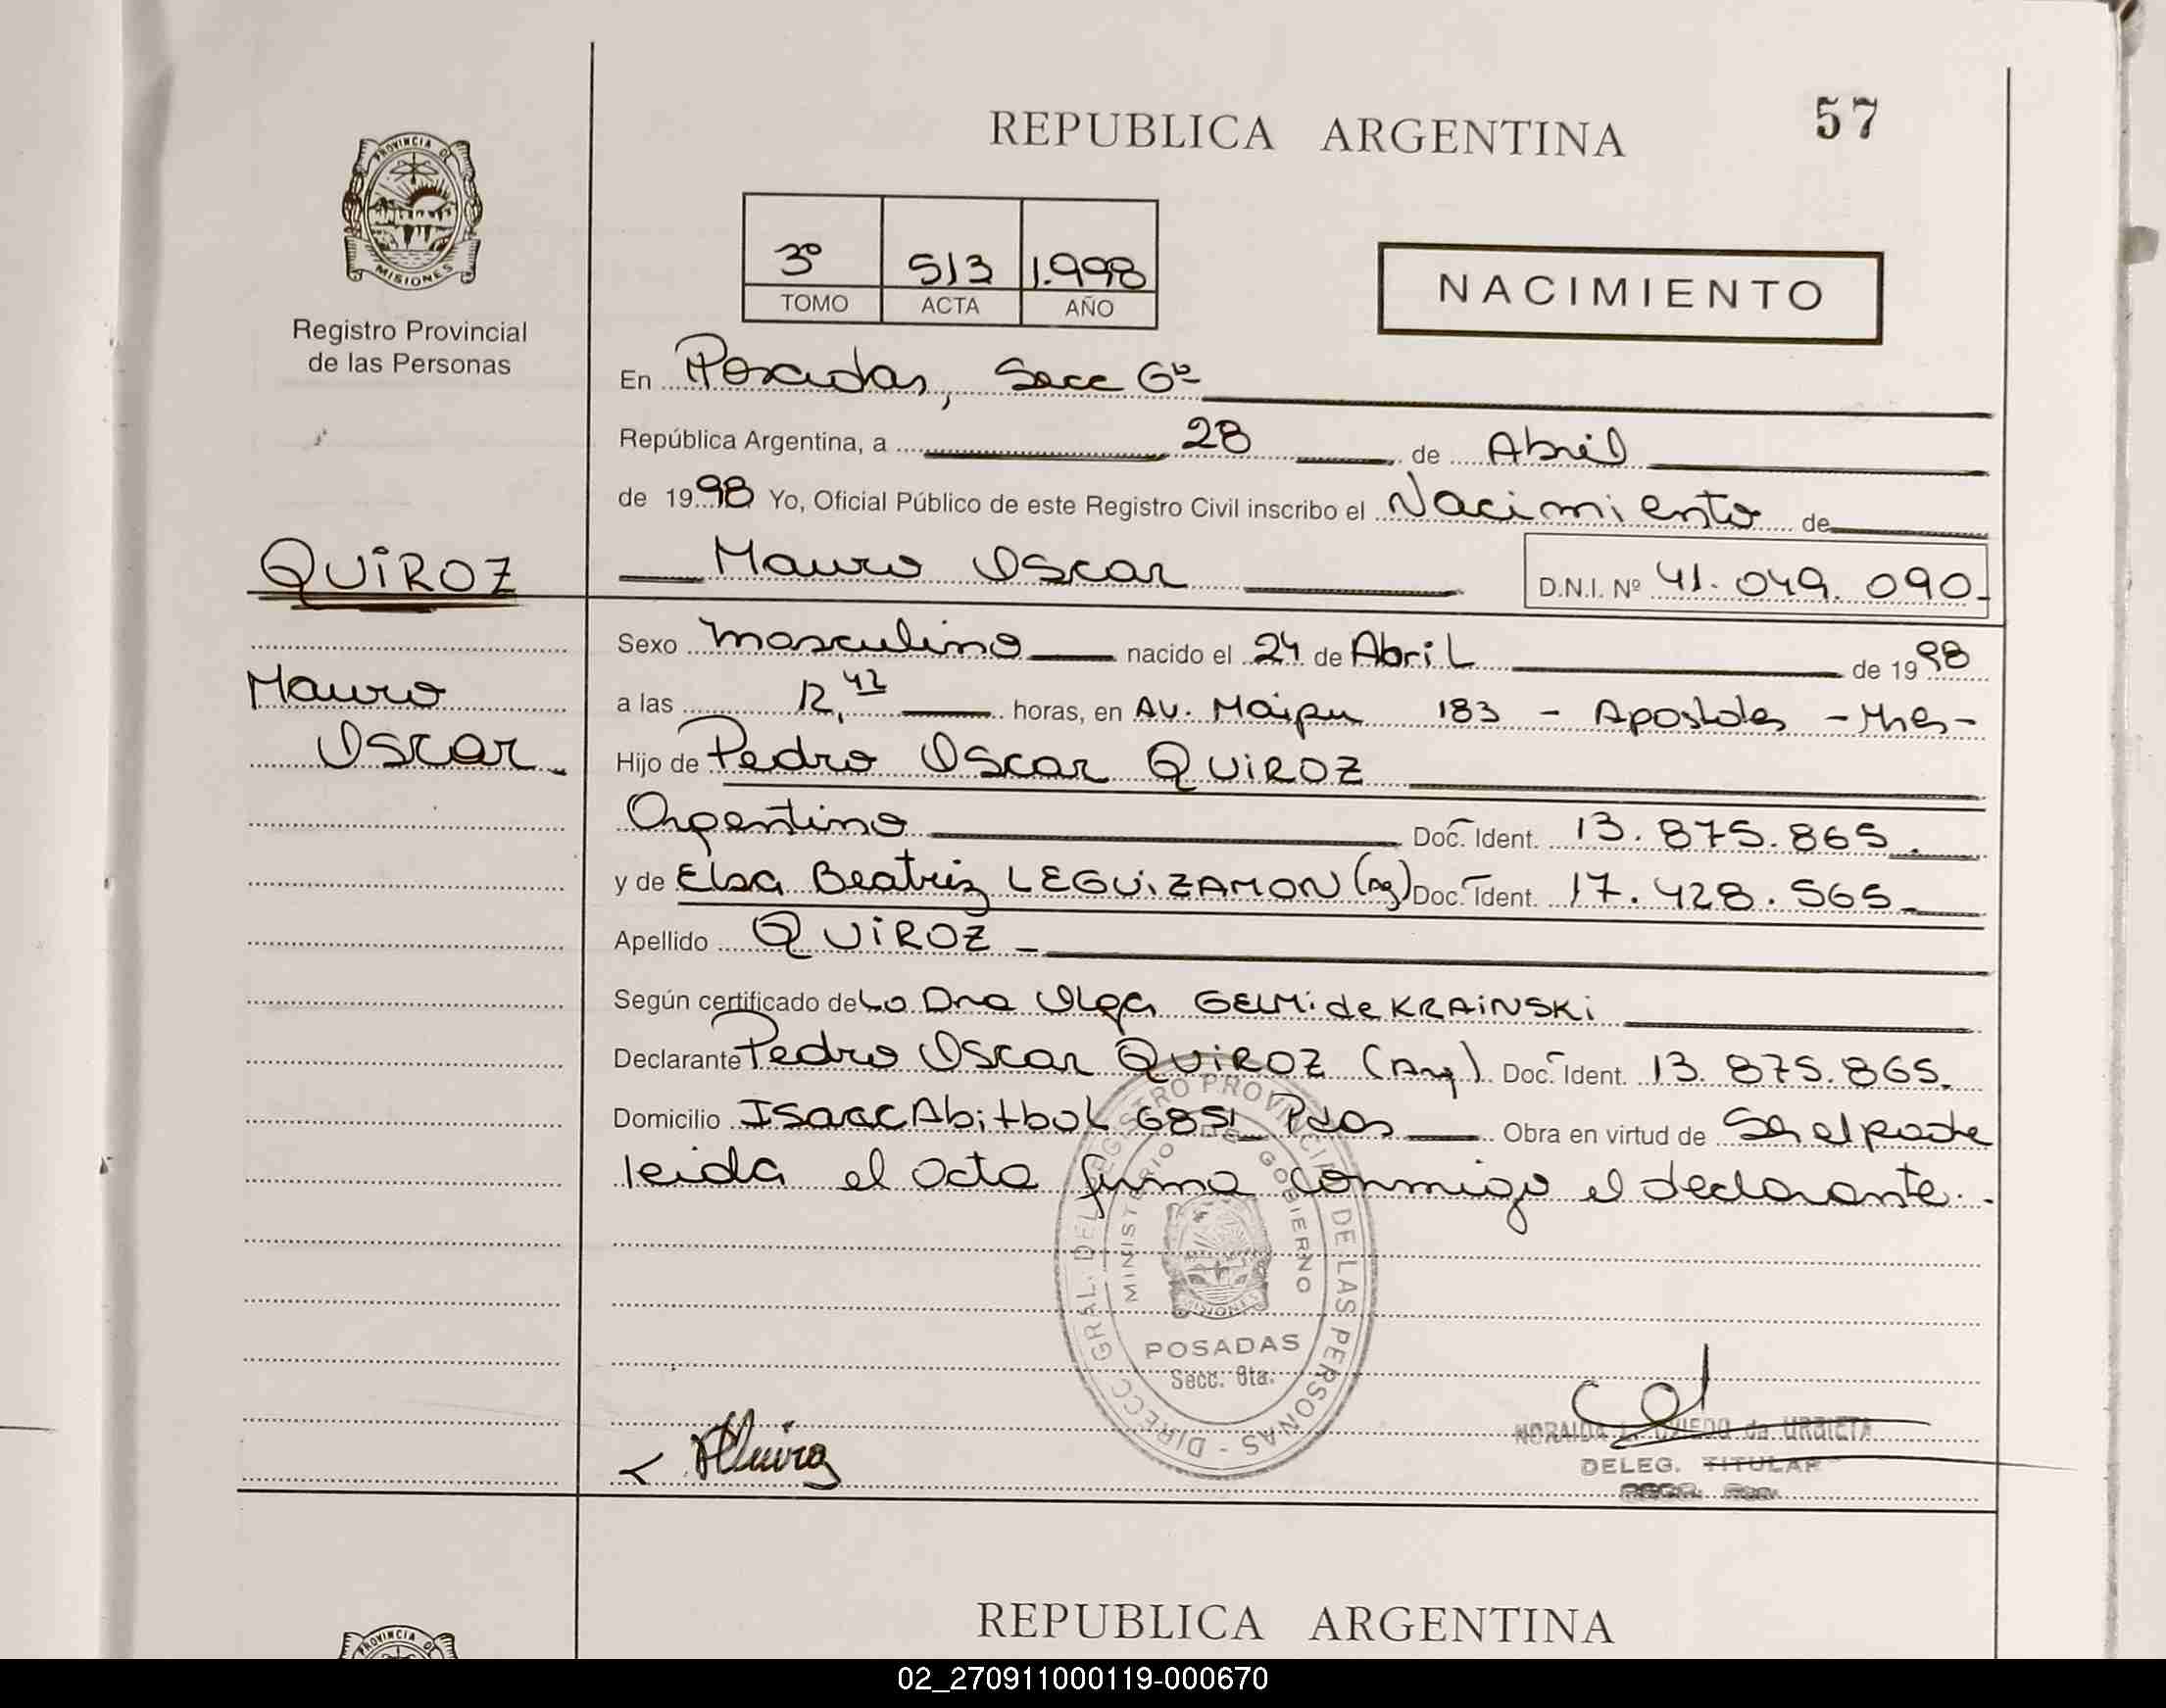 REPUBLICA ARGENTINA
57
PROVINCIA DE
MISIONES
Registro Provincial
de las Personas
3º 513 1.998
TOMO ACTA AÑO
NACIMIENTO
En Posadas, Secc 6ª
República Argentina, a 28 de Abril
de 1998 Yo, Oficial Público de este Registro Civil inscribo el Nacimiento de
QUIROZ
Mauro Oscar
D.N.I. Nº 41.049.090-
Sexo masculino nacido el 24 de Abril de 1998
Mauro
a las 12,42 horas, en Av. Maipu 183 - Apostoles - Mnes-
Oscar
Hijo de Pedro Oscar QUIROZ
Argentino Doc. Ident. 13.875.865.
y de Elsa Beatriz LEGUIZAMON (Arg) Doc. Ident. 17.428.565
Apellido QUIROZ
Según certificado de La Dra Olga GELMI de KRAINSKI
Declarante Pedro Oscar QUIROZ (Arg) Doc. Ident. 13.875.865.
Domicilio Isaac Abitbol 6851 Pdas Obra en virtud de Ser el padre
leida el acta firma conmigo el declarante.
DIRECC. GRAL. DEL REGISTRO PROVINCIAL DE LAS PERSONAS
MINISTERIO DE GOBIERNO
MISIONES
POSADAS
Secc. 6ta.
NORAIDA L. OVIEDO de URBIETA
DELEG. TITULAR
REPUBLICA ARGENTINA
PROVINCIA DE
02_270911000119-000670